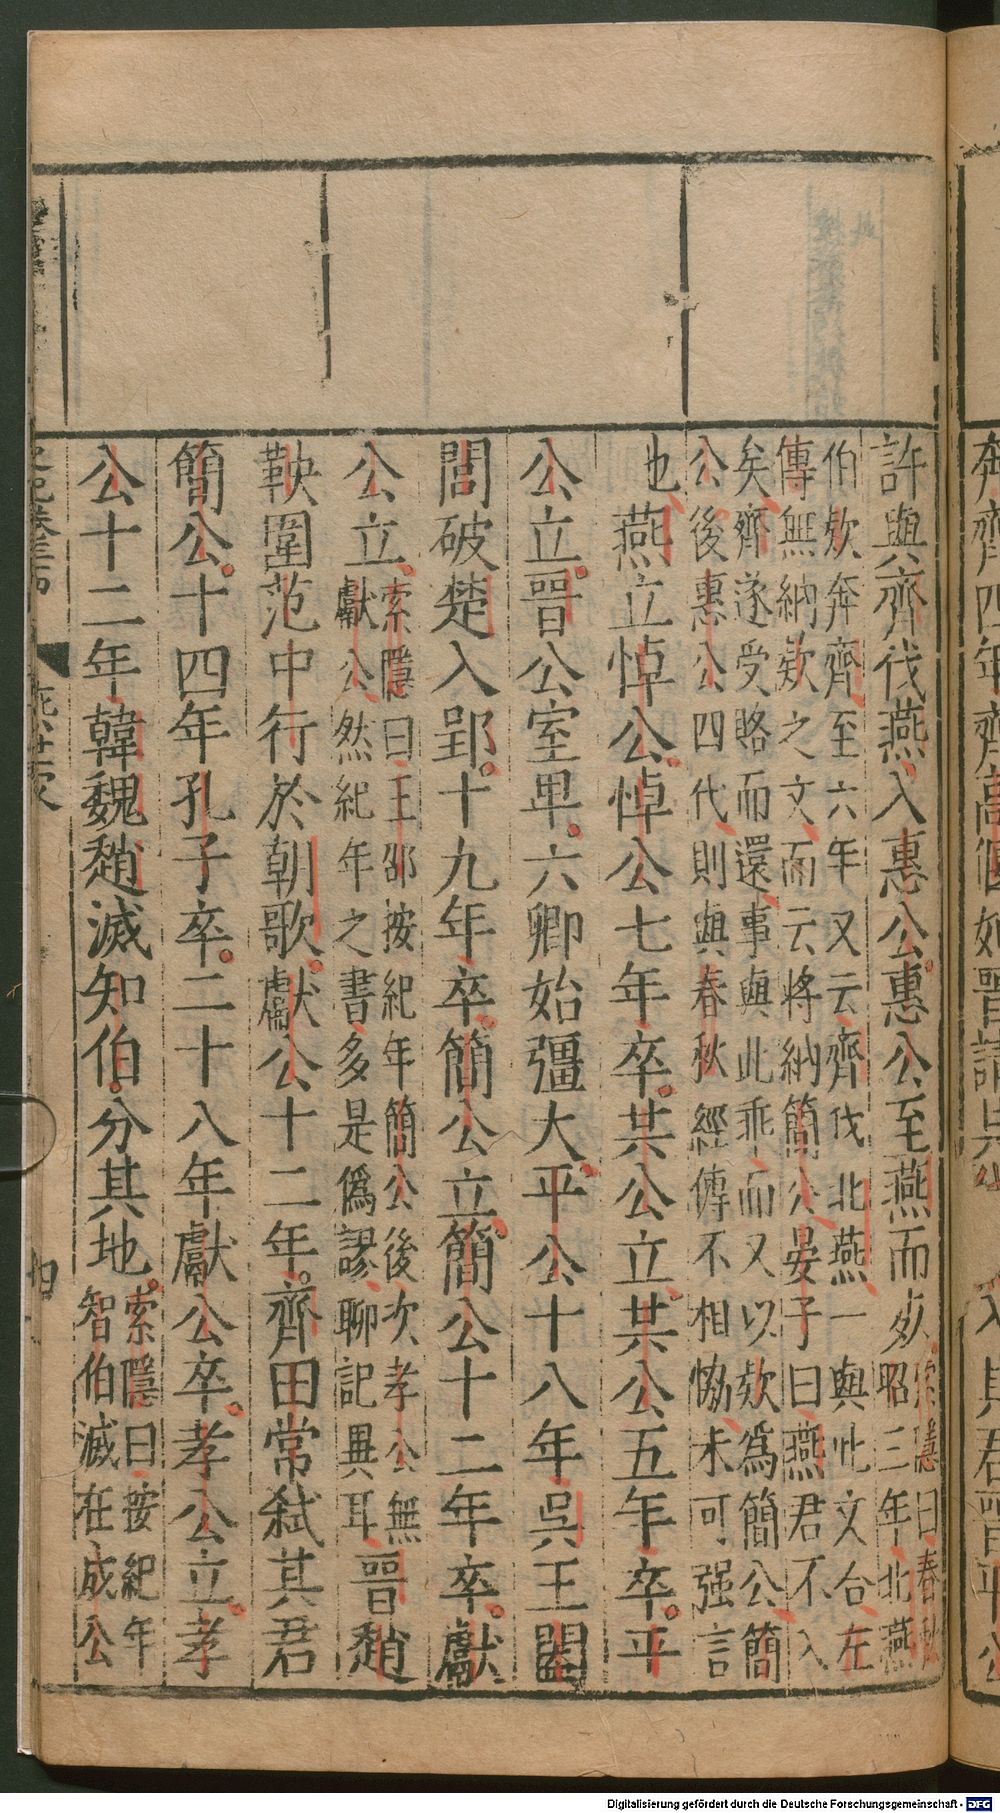 許與齊伐燕入惠公惠公至燕而死索隱曰春秋昭三年北燕
伯欵奔齊至六年又云齊伐北燕一與此文合左
傳無納欵之文而云將納簡公晏子曰燕君不入
矣齊遂受賂而還事與此乖而又以欵爲簡公簡
公後惠公四代則與春秋經傳不相恊未可强言
也燕立悼公悼公七年卒某公立某公五年卒平
公立晉公室卑六卿始彊大平公十八年吳王闔
閭破楚入郢十九年卒簡公立簡公十二年卒獻
公立索隱曰王邵按紀年簡公後次孝公無
獻公然紀年之書多是僞謬聊記異耳晉趙
鞅圍范中行於朝歌獻公十二年齊田常弒其君
簡公十四年孔子卒二十八年獻公卒孝公立孝
公十二年韓魏趙滅知伯分其地索隱曰按紀年
智伯滅在成公
燕世家
四
Digitalisierung gefördert durch die Deutsche Forschungsgemeinschaft - DFG